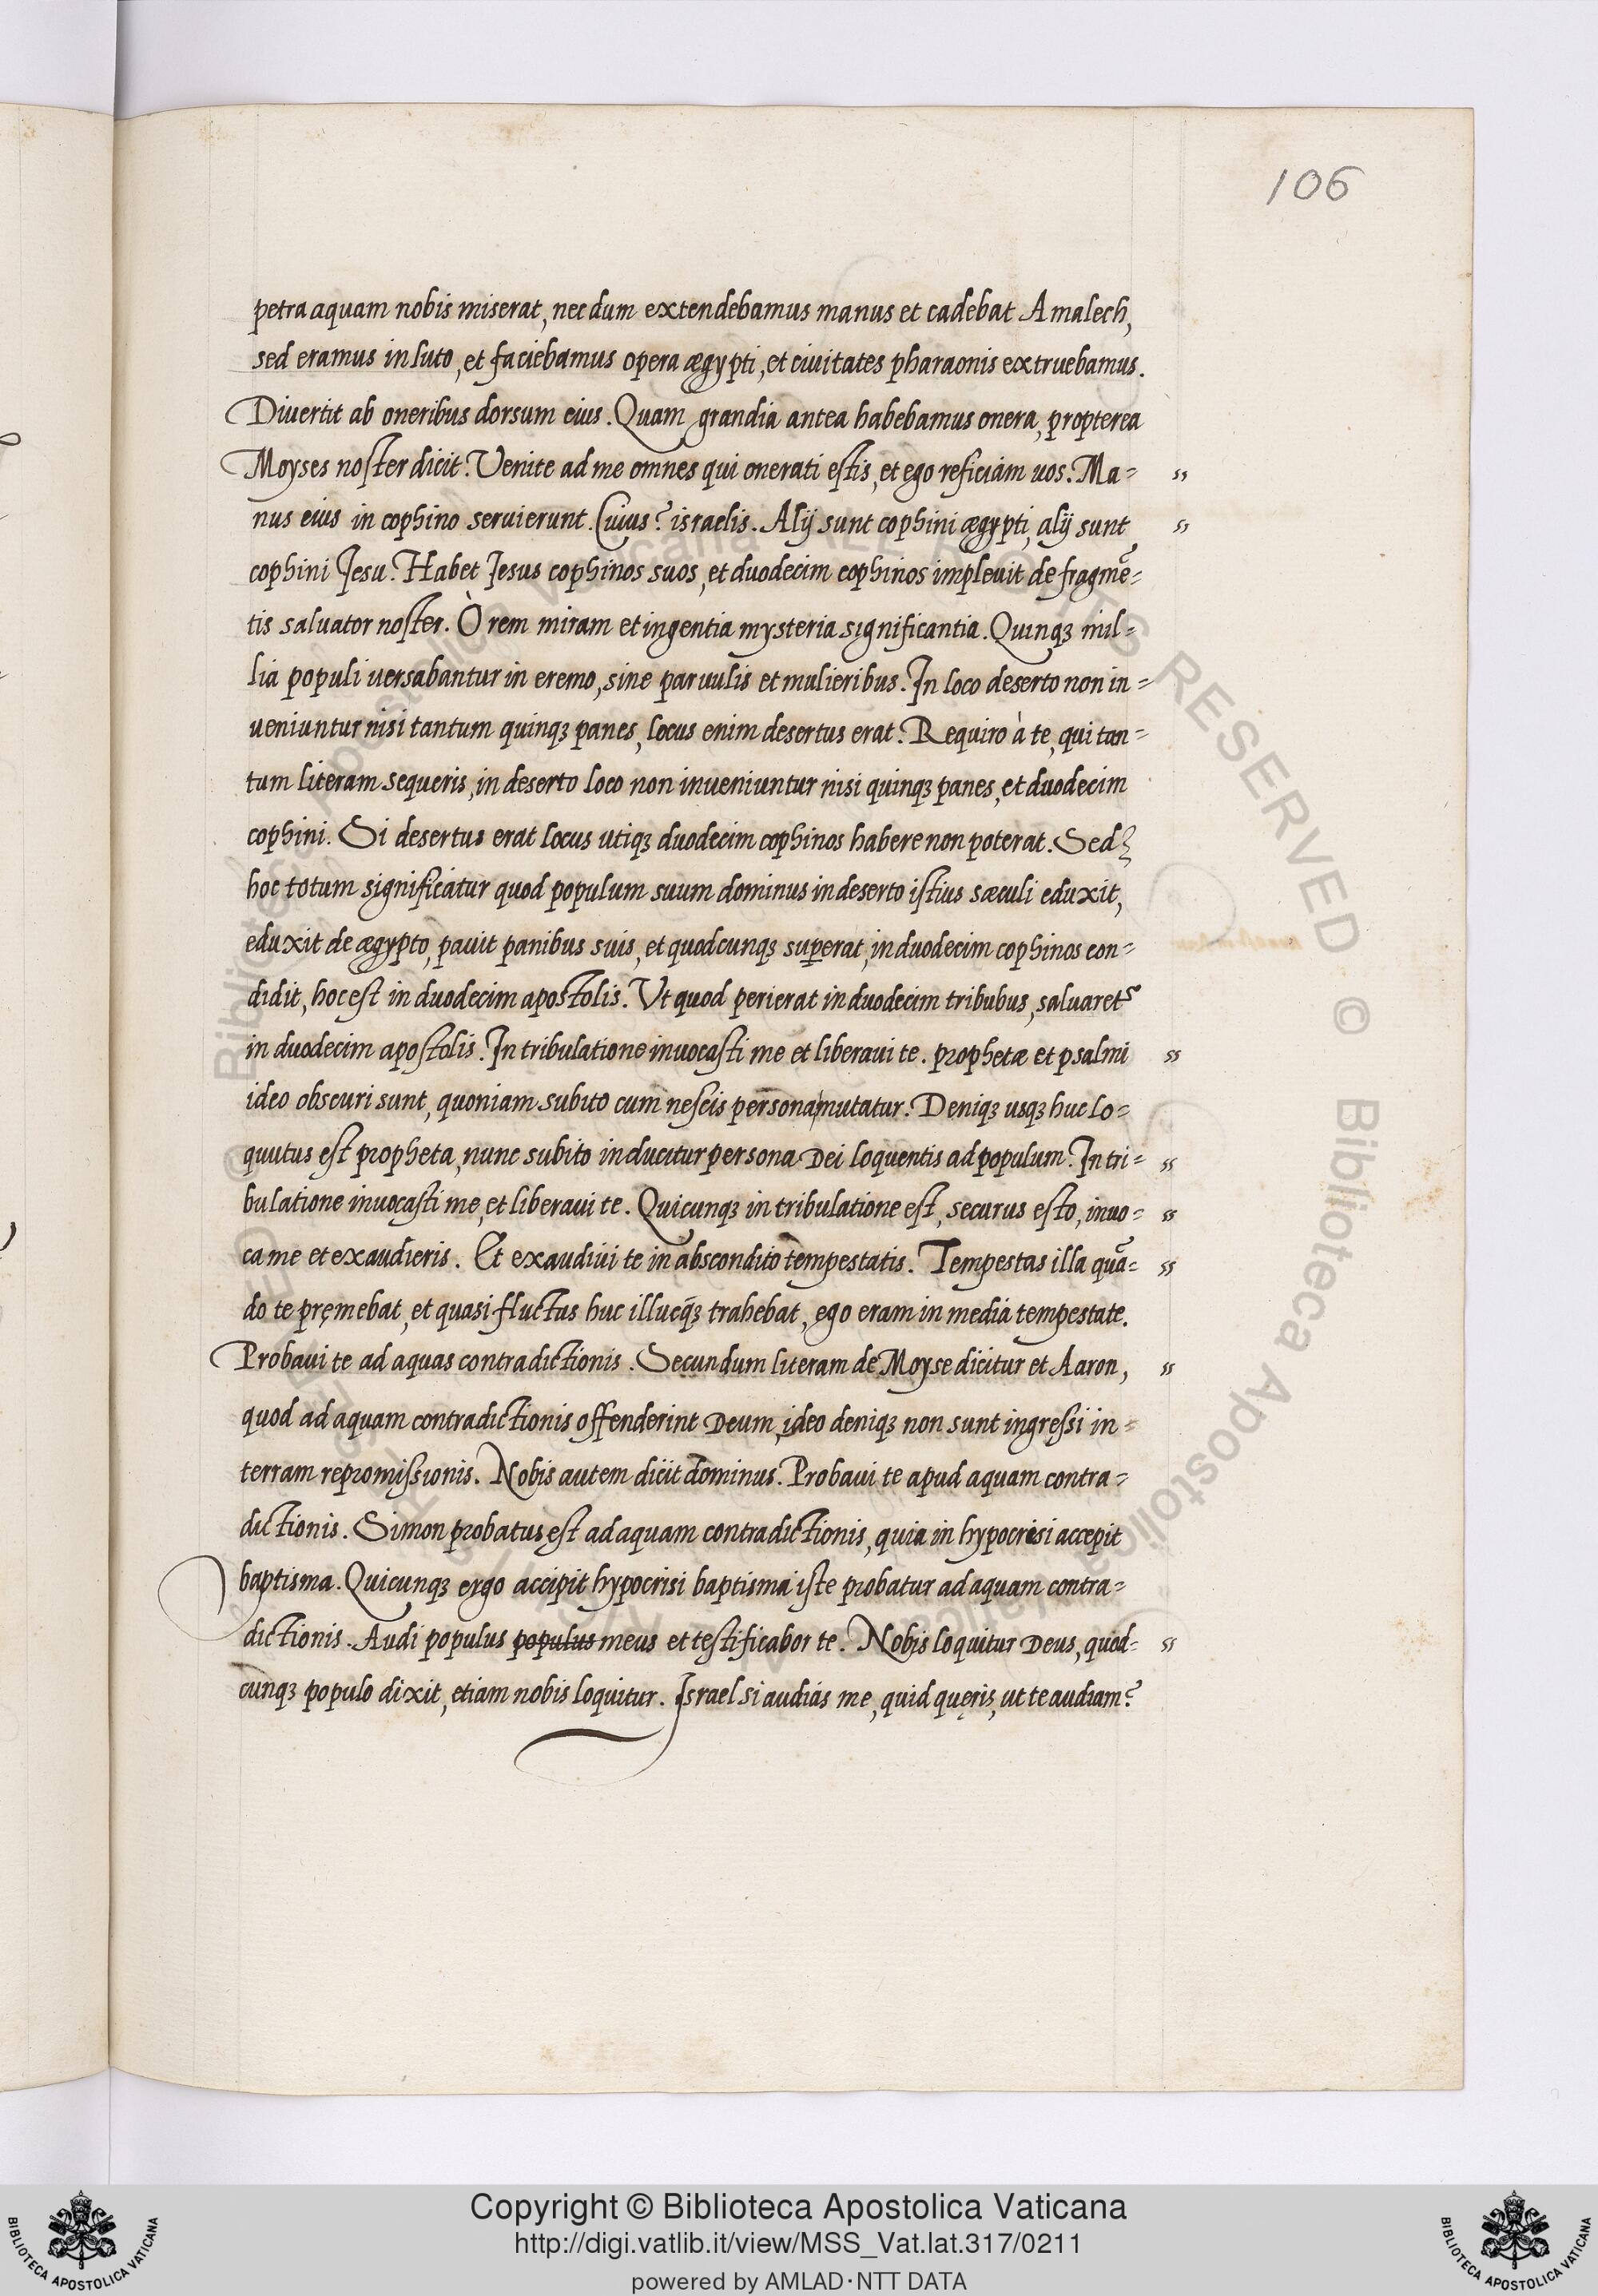 106
petra aquam nobis miserat, nec dum extendebamus manus et cadebat Amalech,
sed eramus in luto, et faciebamus opera ægypti, et ciuitates pharaonis extruebamus.
Diuertit ab oneribus dorsum eius. Quam grandia antea habebamus onera, propterea
Moyses noster dicit. Venite ad me omnes qui onerati estis, et ego reficiam uos. Ma= ss
nus eius in cophino seruierunt. Cuius? israelis. Alij sunt cophini ægypti, alij sunt ss
cophini Jesu. Habet Jesus cophinos suos, et duodecim cophinos impleuit de fragmē=
tis saluator noster. Ò rem miram et ingentia mysteria significantia. Quinqȝ mil=
lia populi uersabantur in eremo, sine paruulis et mulieribus. In loco deserto non in=
ueniuntur nisi tantum quinqȝ panes, locus enim desertus erat. Requiro à te, qui tan=
tum literam sequeris, in deserto loco non inueniuntur nisi quinqȝ panes, et duodecim
cophini. Si desertus erat locus utiqȝ duodecim cophinos habere non poterat. Sed
hoc totum significatur quod populum suum dominus in deserto istius sæculi eduxit,
eduxit de ægypto, pauit panibus suis, et quodcunqȝ superat, in duodecim cophinos con=
didit, hoc est in duodecim apostolis. Vt quod perierat in duodecim tribubus, saluaret᷑
in duodecim apostolis. In tribulatione inuocasti me et liberaui te. prophetæ et psalmi ss
ideo obscuri sunt, quoniam subito cum nescis persona mutatur. Deniqȝ usqȝ huc lo=
quutus est propheta, nunc subito inducitur persona Dei loquentis ad populum. In tri= ss
bulatione inuocasti me, et liberaui te. Quicunqȝ in tribulatione est, securus esto, inuo= ss
ca me et exaudieris. Et exaudiui te in abscondito tempestatis. Tempestas illa quā= ss
do te pręmebat, et quasi fluctus huc illucq̄ȝ trahebat, ego eram in media tempestate.
Probaui te ad aquas contradictionis. Secundum literam de Moyse dicitur et Aaron, ss
quod ad aquam contradictionis offenderint Deum, ideo deniqȝ non sunt ingressi in=
terram repromissionis. Nobis autem dicit dominus. Probaui te apud aquam contra=
dictionis. Simon probatus est ad aquam contradictionis, quia in hypocrisi accepit
baptisma. Quicunqȝ ergo accipit hypocrisi baptisma iste probatur ad aquam contra=
dictionis. Audi populus populus meus et testificabor te. Nobis loquitur Deus, quod= ss
cunqȝ populo dixit, etiam nobis loquitur. Israel si audias me, quid quęris, ut te audiam?
Copyright © Biblioteca Apostolica Vaticana
http://digi.vatlib.it/view/MSS_Vat.lat.317/0211
powered by AMLAD·NTT DATA
BIBLIOTECA APOSTOLICA VATICANA
BIBLIOTECA APOSTOLICA VATICANA